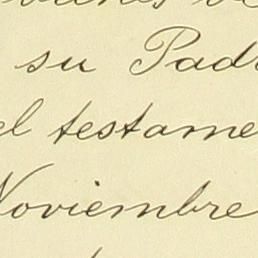 su Padr
el testame
Noviembre